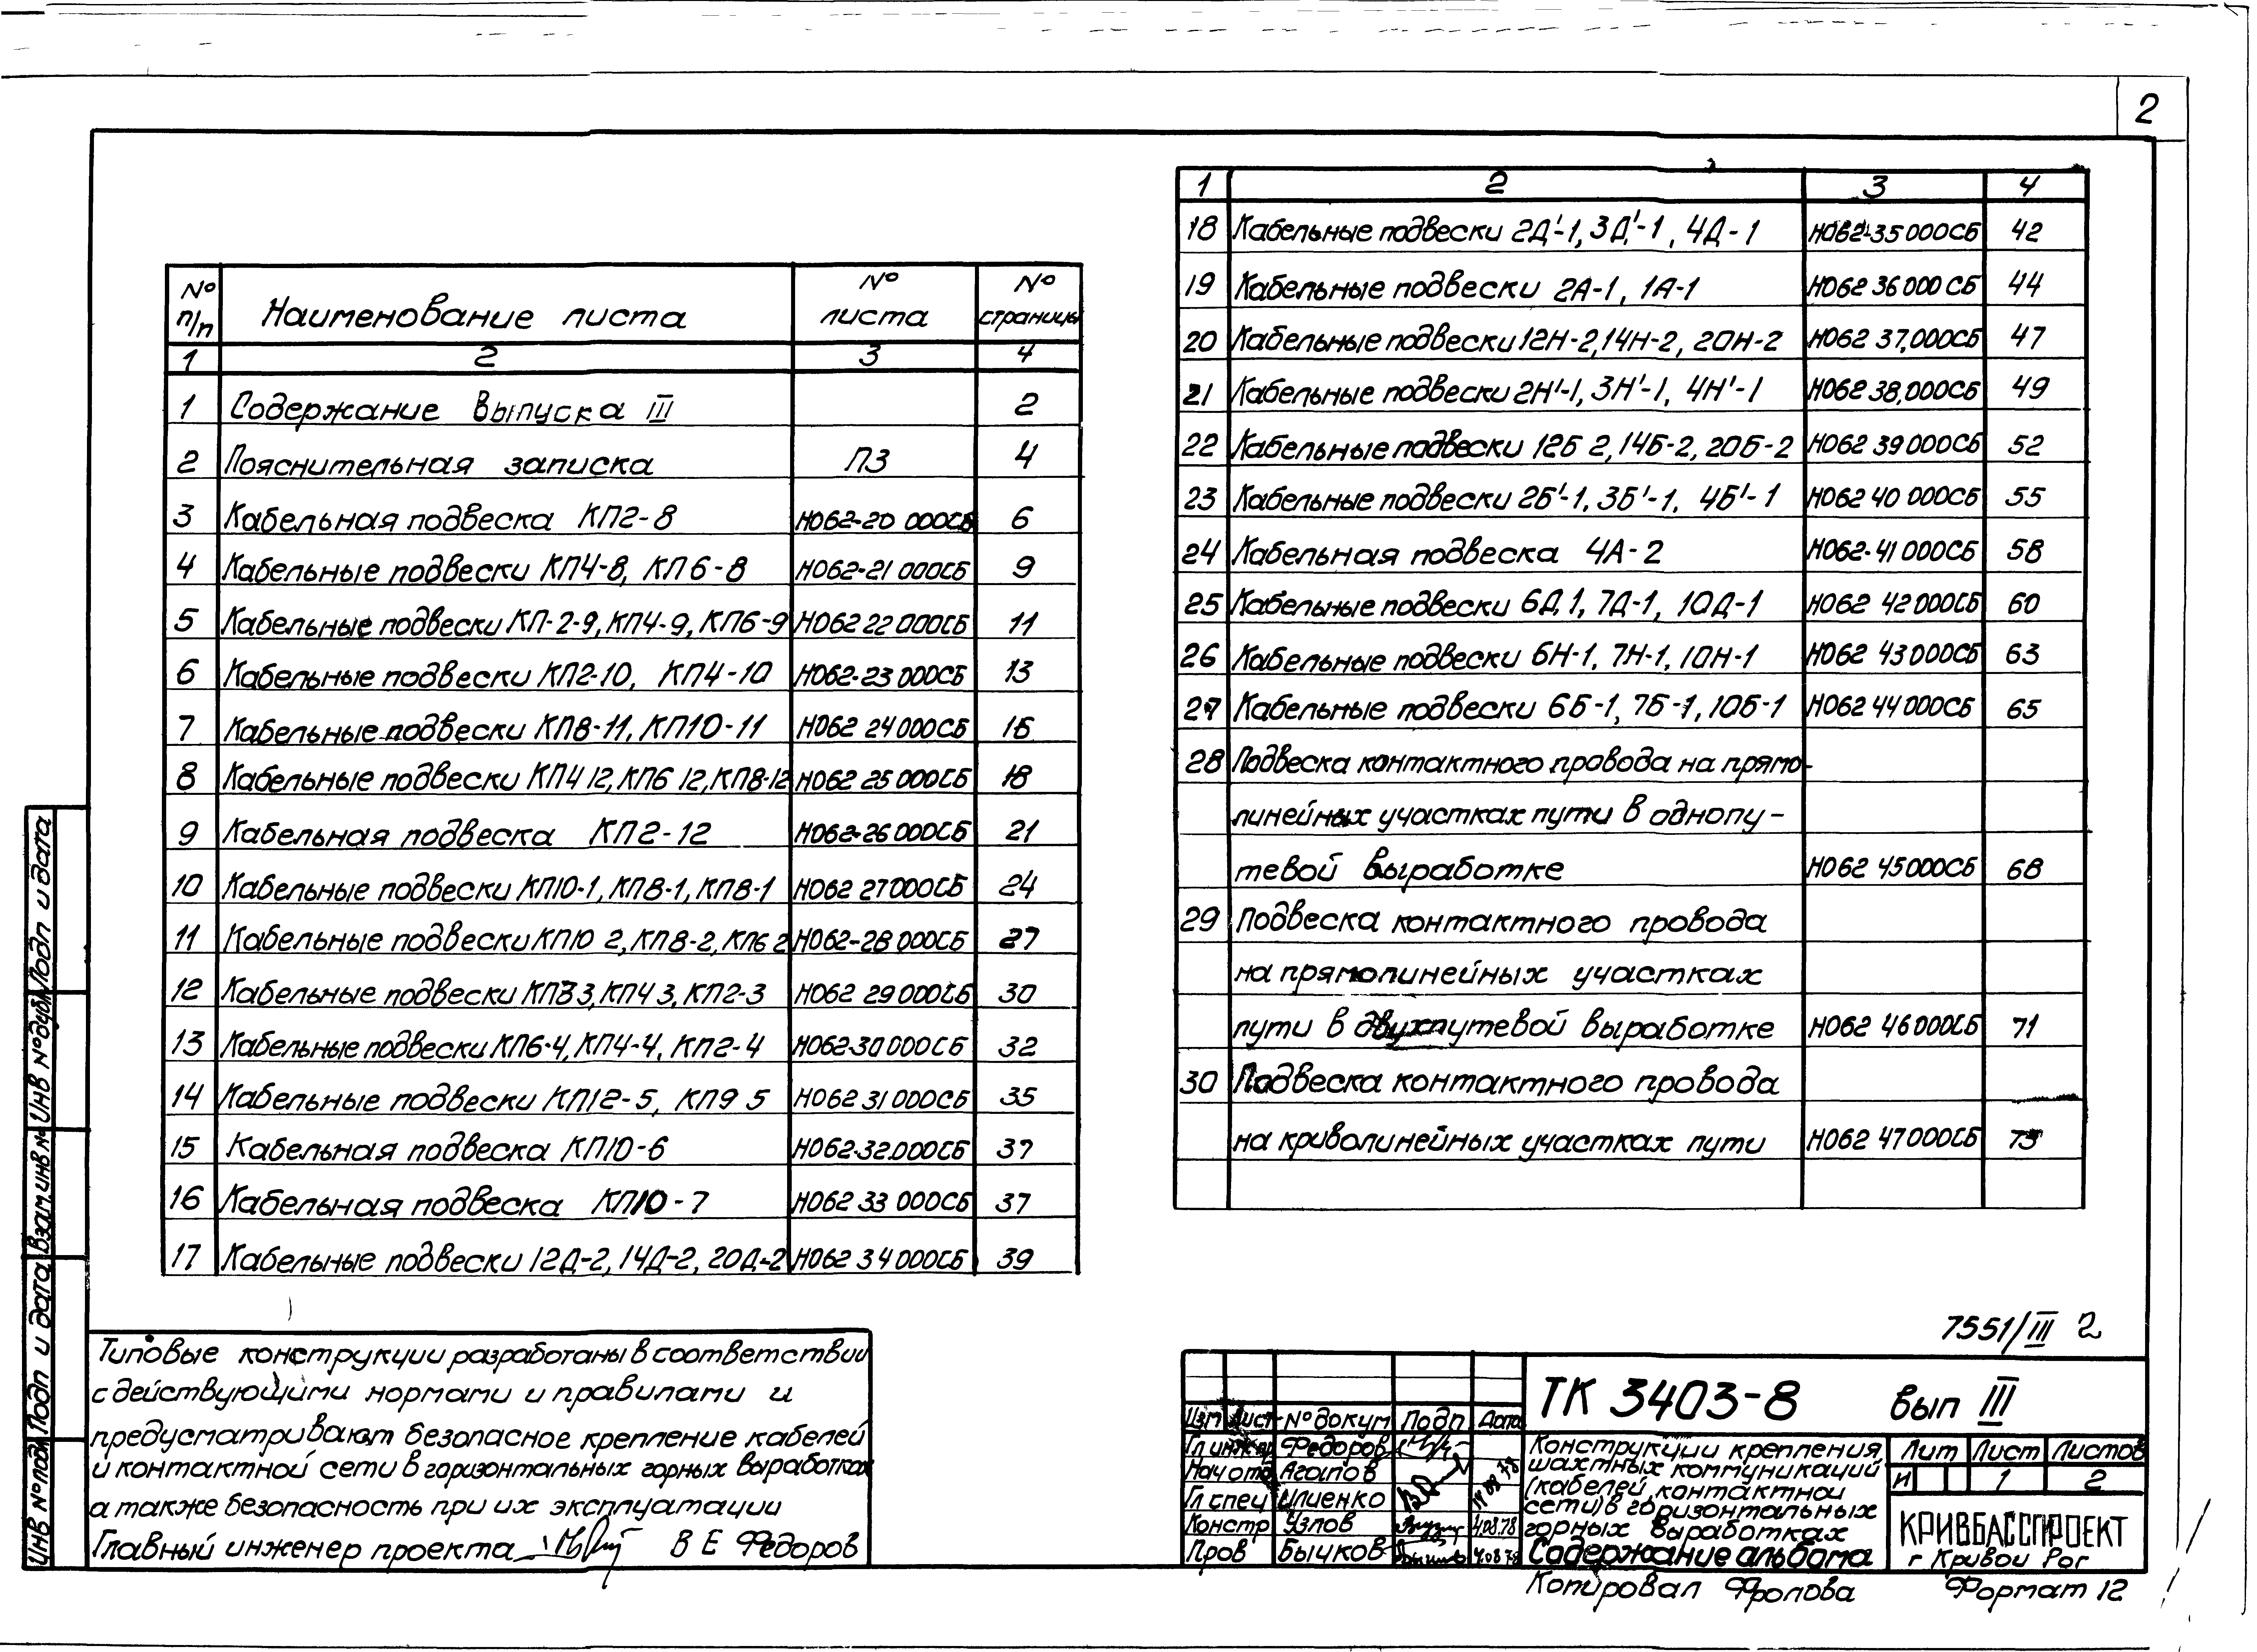 2
№ п/п Наименование листа № листа № страницы
1 2 3 4
1 Содержание выпуска III 2
2 Пояснительная записка ПЗ 4
3 Кабельная подвеска КП2-8 Н062-20 000СБ 6
4 Кабельные подвески КП4-8, КП6-8 Н062-21 000СБ 9
5 Кабельные подвески КП-2-9, КП4-9, КП6-9 Н062 22 000СБ 11
6 Кабельные подвески КП2-10, КП4-10 Н062-23 000СБ 13
7 Кабельные подвески КП8-11, КП10-11 Н062 24 000СБ 16
8 Кабельные подвески КП4 12, КП6 12, КП8-12 Н062 25 000СБ 18
9 Кабельная подвеска КП2-12 Н062-26 000СБ 21
10 Кабельные подвески КП10-1, КП8-1, КП8-1 Н062 27 000СБ 24
11 Кабельные подвески КП10 2, КП8-2, КП6 2 Н062-28 000СБ 27
12 Кабельные подвески КП8 3, КП4 3, КП2-3 Н062 29 000СБ 30
13 Кабельные подвески КП6-4, КП4-4, КП2-4 Н062-30 000СБ 32
14 Кабельные подвески КП12-5, КП9 5 Н062 31 000СБ 35
15 Кабельная подвеска КП10-6 Н062-32.000СБ 37
16 Кабельная подвеска КП10-7 Н062 33 000СБ 37
17 Кабельные подвески 12Д-2, 14Д-2, 20Д-2 Н062 34 000СБ 39
1 2 3 4
18 Кабельные подвески 2Д'-1, 3Д'-1, 4Д-1 Н062-35 000СБ 42
19 Кабельные подвески 2А-1, 1А-1 Н062 36 000 СБ 44
20 Кабельные подвески 12Н-2, 14Н-2, 20Н-2 Н062 37.000СБ 47
21 Кабельные подвески 2Н'-1, 3Н'-1, 4Н'-1 Н062 38.000СБ 49
22 Кабельные подвески 12Б 2, 14Б-2, 20Б-2 Н062 39 000СБ 52
23 Кабельные подвески 2Б'-1, 3Б'-1, 4Б'-1 Н062 40 000СБ 55
24 Кабельная подвеска 4А-2 Н062-41 000СБ 58
25 Кабельные подвески 6Д 1, 7Д-1, 10Д-1 Н062 42 000СБ 60
26 Кабельные подвески 6Н-1, 7Н-1, 10Н-1 Н062 43 000СБ 63
27 Кабельные подвески 6Б-1, 7Б-1, 10Б-1 Н062 44 000СБ 65
28 Подвеска контактного провода на прямо-
линейных участках пути в однопу-
тевой выработке Н062 45 000СБ 68
29 Подвеска контактного провода
на прямолинейных участках
пути в двухпутевой выработке Н062 46 000СБ 71
30 Подвеска контактного провода
на криволинейных участках пути Н062 47 000СБ 73
Типовые конструкции разработаны в соответствии
с действующими нормами и правилами и
предусматривают безопасное крепление кабелей
и контактной сети в горизонтальных горных выработках
а также безопасность при их эксплуатации
Главный инженер проекта В Е Федоров
7551/III 2
ТК 3403-8 вып III
Изм Лист № докум Подп Дата
Гл инж пр Федоров
Нач отд Агапов
Гл спец Илиенко
Констр Узлов 4.08.78
Пров Бычков 4.08.78
Конструкции крепления
шахтных коммуникаций
(кабелей, контактной
сети) в горизонтальных
горных выработках
Содержание альбома
Лит Лист Листов
И 1 2
КРИВБАССПРОЕКТ
г Кривой Рог
Копировал Фролова Формат 12
Инв № подл Подп и дата Взам.инв № Инв № дубл Подп и дата